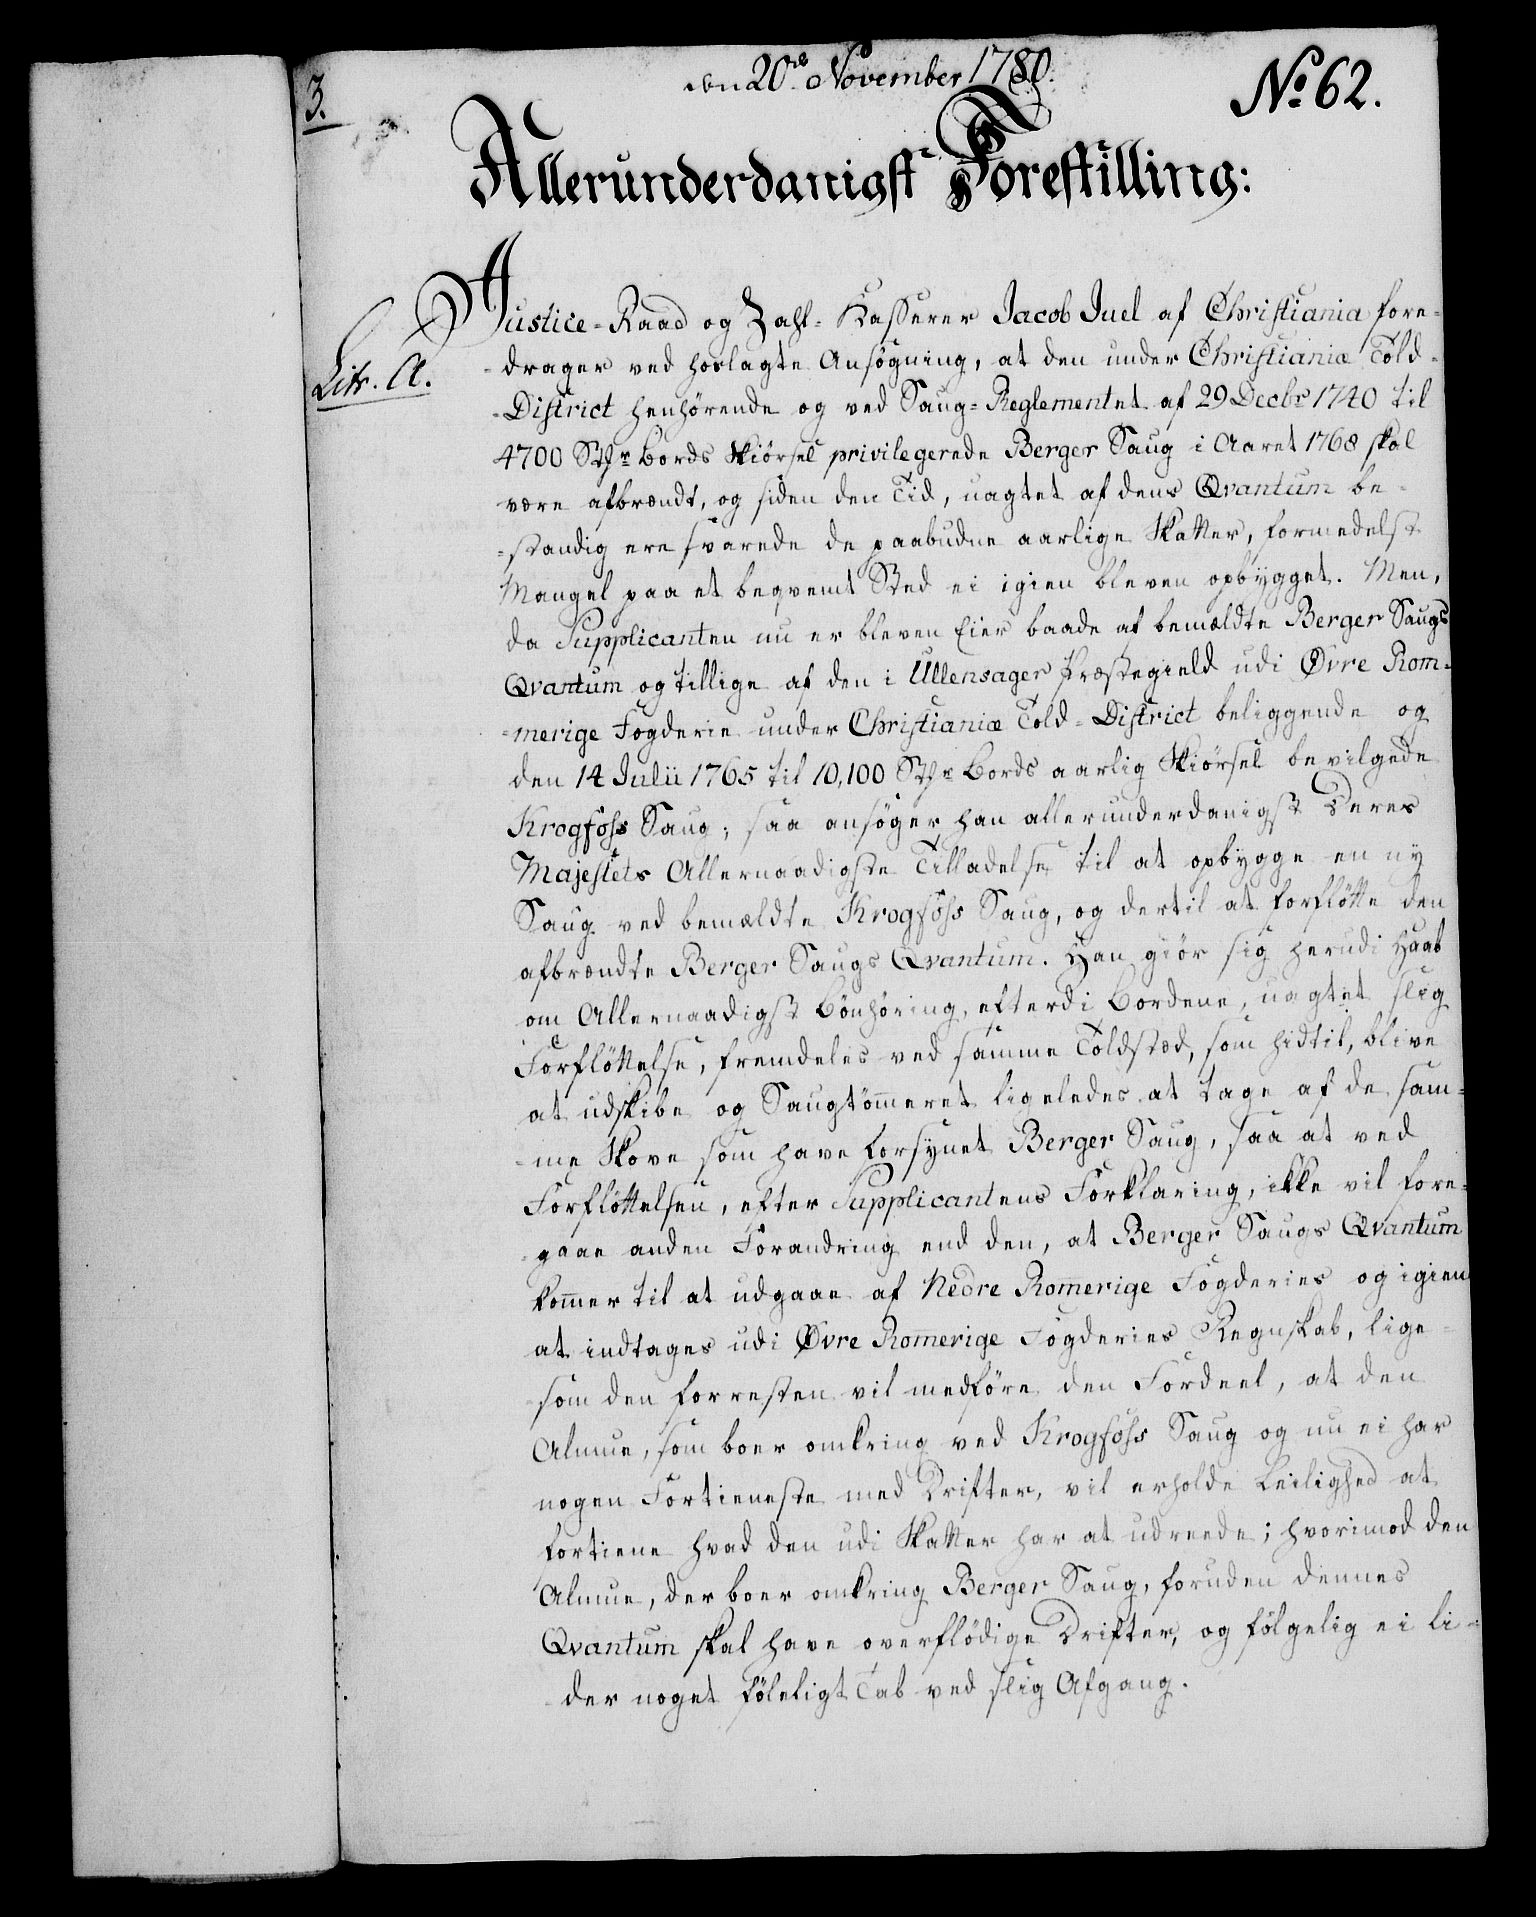 3.
den 20de November 1780.
No 62.
Allerunderdanigst Forestilling:
Litr. A.
Justice-Raad og Zahl-Kasserer Jacob Juel af Christiania fore-
-drager ved hoslagte Ansøgning, at den under Christianiæ Told-
-District henhørende og ved Saug-Reglementet af 29 Decbr 1740 til
4700 Stkr Bords Skiørsel privilegerede Berger Saug i Aaret 1768 skal
være afbrændt, og siden den Tid, uagtet af dens Qvantum be-
-standig ere svarede de paabudne aarlige Skatter, formedelst
Mangel paa et beqvemt Sted ei igien bleven opbygget. Men,
da Supplicanten nu er bleven Eier baade af bemældte Berger Saugs
Qvantum og tillige af den i Ullensager Præstegield udi Øvre Rom-
-merige Fogderie under Christianiæ Told-District beliggende og
den 14 Julii 1765 til 10,100 Stkr Bords aarlig Skiørsel bevilgede
Krogfoss Saug; saa ansøger han allerunderdanigst Deres
Majestets Allernaadigste Tilladelse til at opbygge en ny
Saug ved bemældte Krogfoss Saug, og dertil at forfløtte den
afbrændte Berger Saugs Qvantum. Han giør sig herudi Haab
om Allernaadigst Bønhøring, efterdi Bordene, uagtet slig
Forfløttelse, fremdeles ved samme Toldsted, som hidtil, blive
at udskibe og Saugtømmeret ligeledes at tage af de sam-
-me Skove som have forsynet Berger Saug, saa at ved
Forfløttelsen, efter Supplicantens Forklaring, ikke vil fore-
-gaae anden Forandring end den, at Berger Saugs Qvantum
kommer til at udgaae af Nedre Romerige Fogderies og igien
at indtages udi Øvre Romerige Fogderies Regnskab, lige-
-som den forresten vil medføre den Fordeel, at den
Almue, som boer omkring ved Krogfoss Saug og nu ei har
nogen Fortieneste med Drifter, vil erholde Leilighed at
fortiene hvad den udi Skatter har at udreede; hvorimod den
Almue, der boer omkring Berger Saug, foruden dennes
Qvantum skal have overflødige Drifter, og følgelig ei li-
der noget føleligt Tab ved slig Afgang.